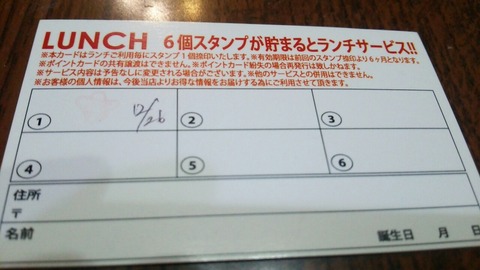 LUNCH 6個スタンプが貯まるとランチサービス!!
※本カードはランチご利用毎にスタンプ1個捺印いたします。※有効期限は前回のスタンプ捺印より6ヶ月となります。
※ポイントカードの共有譲渡はできません。※ポイントカード紛失の場合再発行は致しかねます。
※サービス内容は予告なしに変更される場合がございます。※他のサービスとの併用はできません。
※お客様の個人情報は、今後当店よりお得な情報をお届けする為にご利用させて頂きます。
① 12/26 ② ③
④ ⑤ ⑥
住所
〒
名前 誕生日 月 日